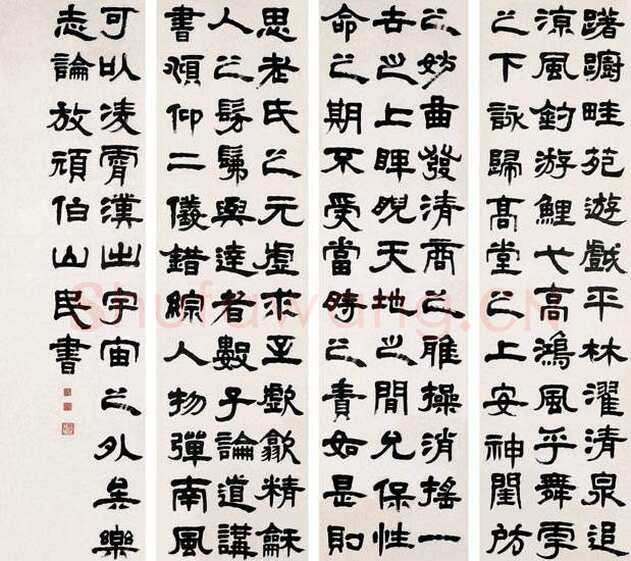 躇蹰畦苑遊戲平林濯清泉追
涼風釣游鯉弋高鴻風乎舞雩
之下詠歸高堂之上安神閨房
之妙曲發清商之雅操消搖一
世之上睥睨天地之間永保性
命之期不受當時之責如是則
思老氏之元虛求至歔歙精龢
人之髣髴與達者數子論道講
書頫仰二儀錯綜人物彈南風
可以凌霄漢出宇宙之外矣樂
志論放頑伯山民書
Shufawang.CN